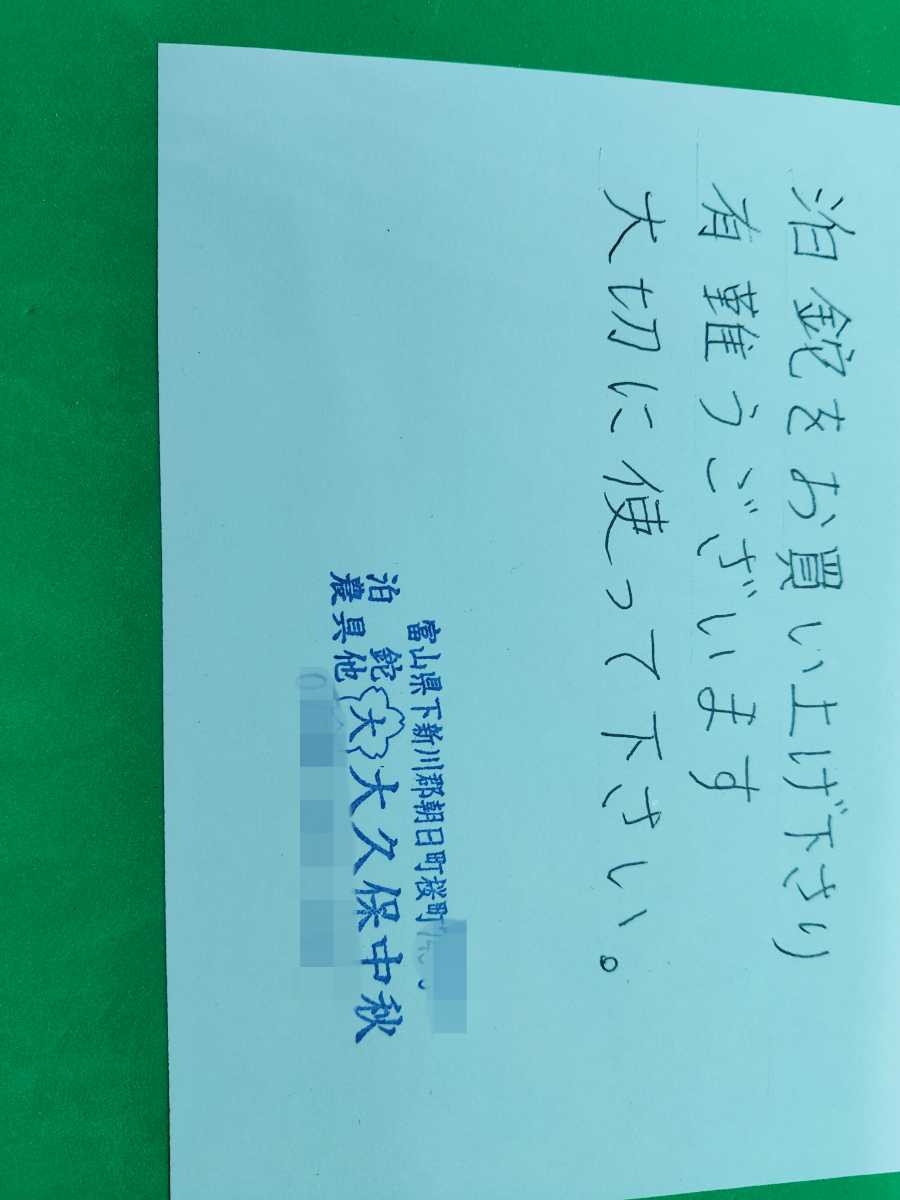 泊鉈をお買い上げ下さり
有難うございます
大切に使って下さい。
富山県下新川郡朝日町桜町
泊 鉈
農具他
大
大久保中秋